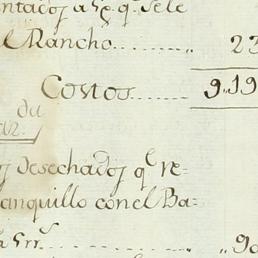 ntados a Sẽ q.e Sele
l Rancho........„ 23
Costos....... 9„19
du
az.
s desechados q.e re-
anquillo con el Ba-
......„ 90